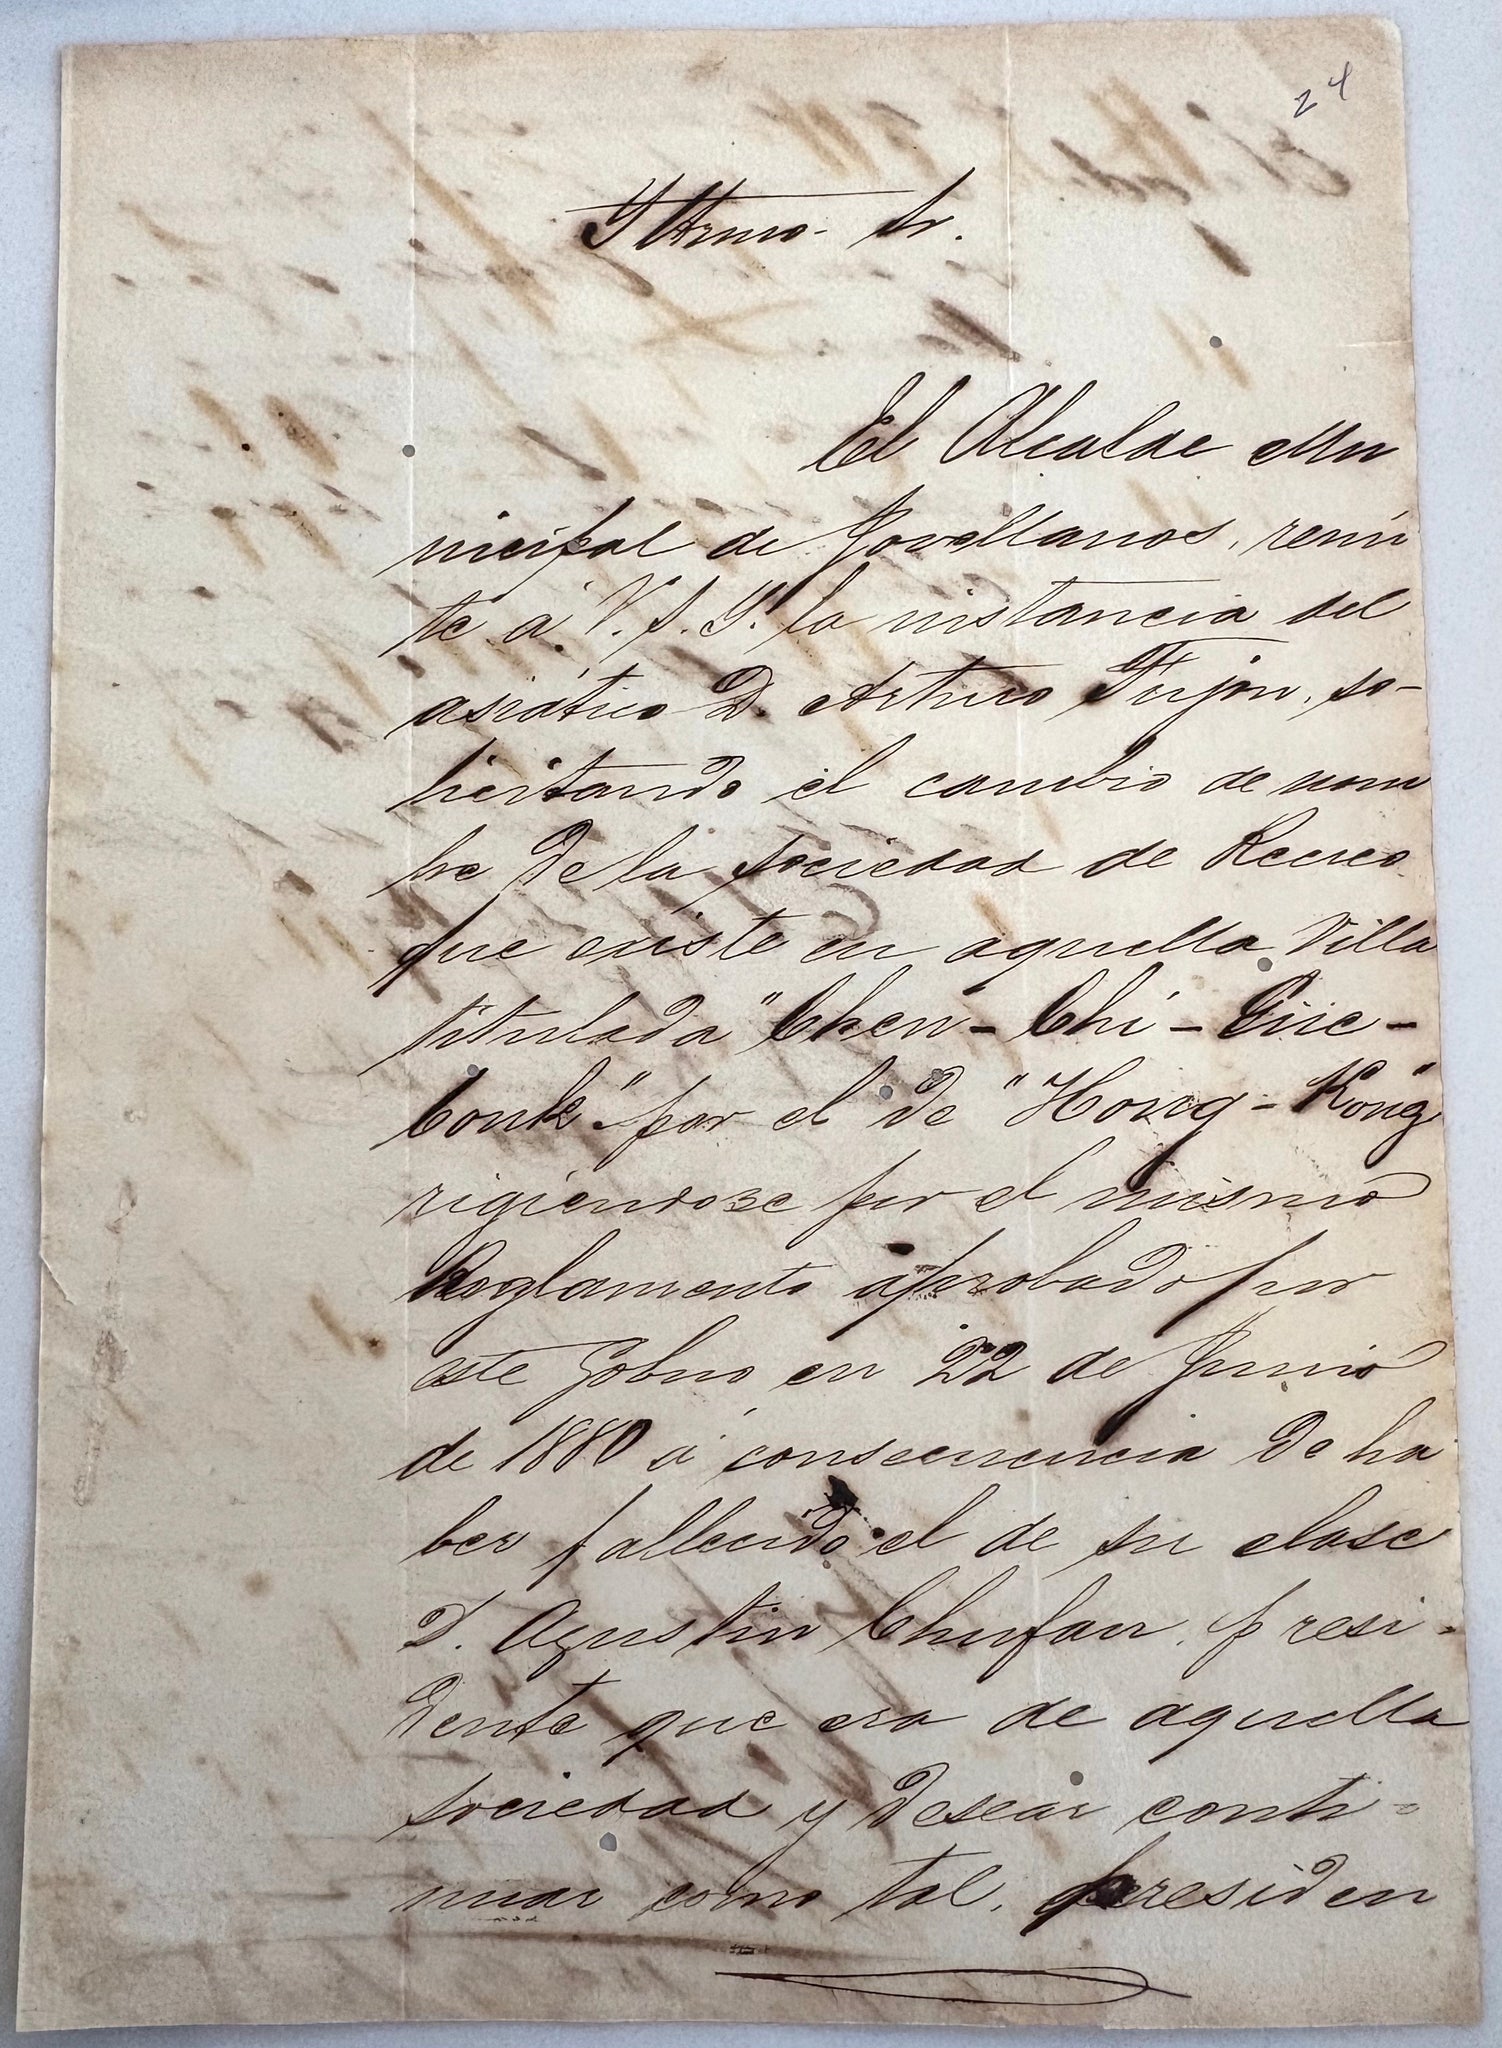 24
Yltrmo. Sr.
El Alcalde Mu
nicipal de Jovellanos, remi
te á V. S. Y. la instancia del
asiático D. Arturo Fujon, so-
licitando el cambio de nom
bre de la sociedad de Recreo
que existe en aquella Villa
titulada "Chen-Chi-
Conk" por el de "Hong-Kong"
rigiendose por el mismo
Reglamento aprobado por
este Gobno en 22 de Junio
de 1880 á consecuencia de ha
ber fallecido el de su clase
D. Agustin Chufan, presi-
dente que era de aquella
sociedad y desear conti-
nuar como tal, presiden